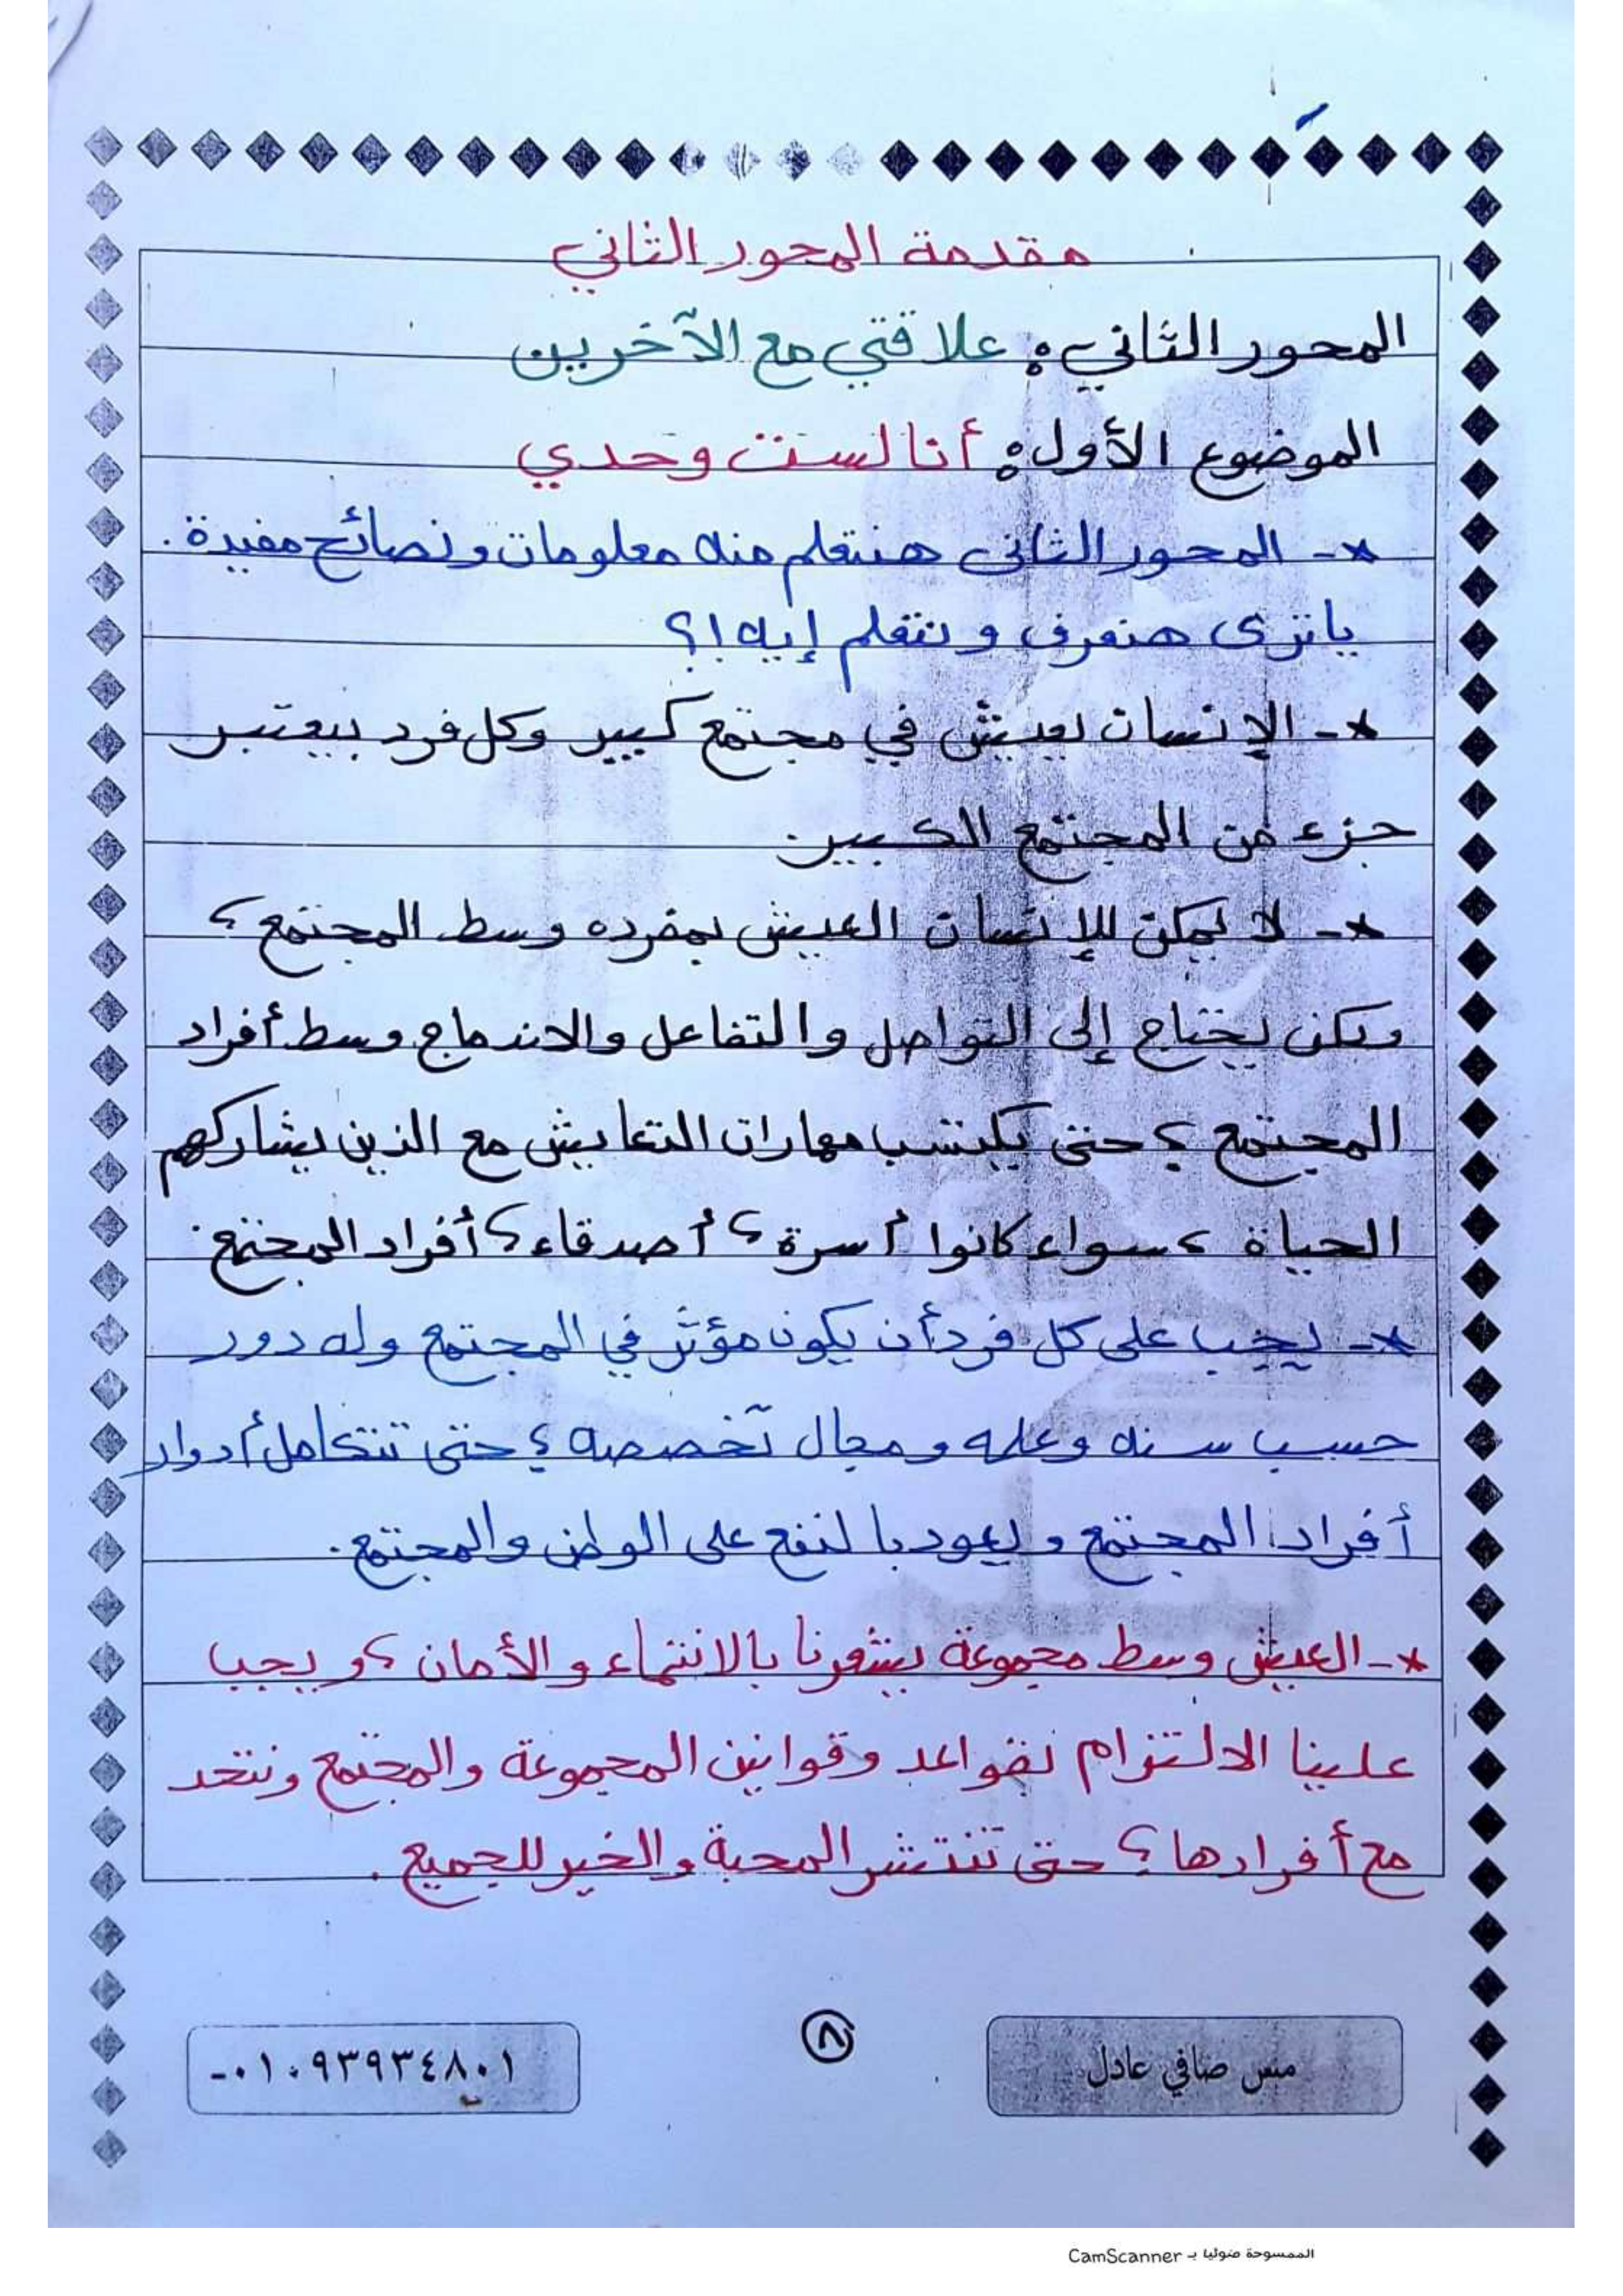 مقدمة المحور الثاني
المحور الثاني: علاقتي مع الآخرين
الموضوع الأول: أنا لست وحدي
*- المحور الثاني هنتعلم منه معلومات ونصائح مفيدة.
ياترى هنعرف ونتعلم إيه!؟
*- الإنسان يعيش في مجتمع كبير وكل فرد بيعتبر
جزء من المجتمع الكبير.
*- لا يمكن للإنسان العيش بمفرده وسط المجتمع؛
ولكن يحتاج إلى التواصل والتفاعل والاندماج وسط أفراد
المجتمع؛ حتى يكتسب مهارات التعايش مع الذين يشاركهم
الحياة، سواء كانوا أسرة، أصدقاء، أفراد المجتمع.
*- يجب على كل فرد أن يكون مؤثر في المجتمع وله دور
حسب سنه وعلمه ومجال تخصصه؛ حتى تتكامل أدوار
أفراد المجتمع ويعود بالنفع على الوطن والمجتمع.
*- العيش وسط مجموعة يشعرنا بالانتماء والأمان، ويجب
علينا الالتزام بقواعد وقوانين المجموعة والمجتمع ونتحد
مع أفرادها؛ حتى تنتشر المحبة والخير للجميع.
مس صافي عادل
٨
٠١٠٩٣٩٣٤٨٠١-
الممسوحة ضوئيا بـ CamScanner